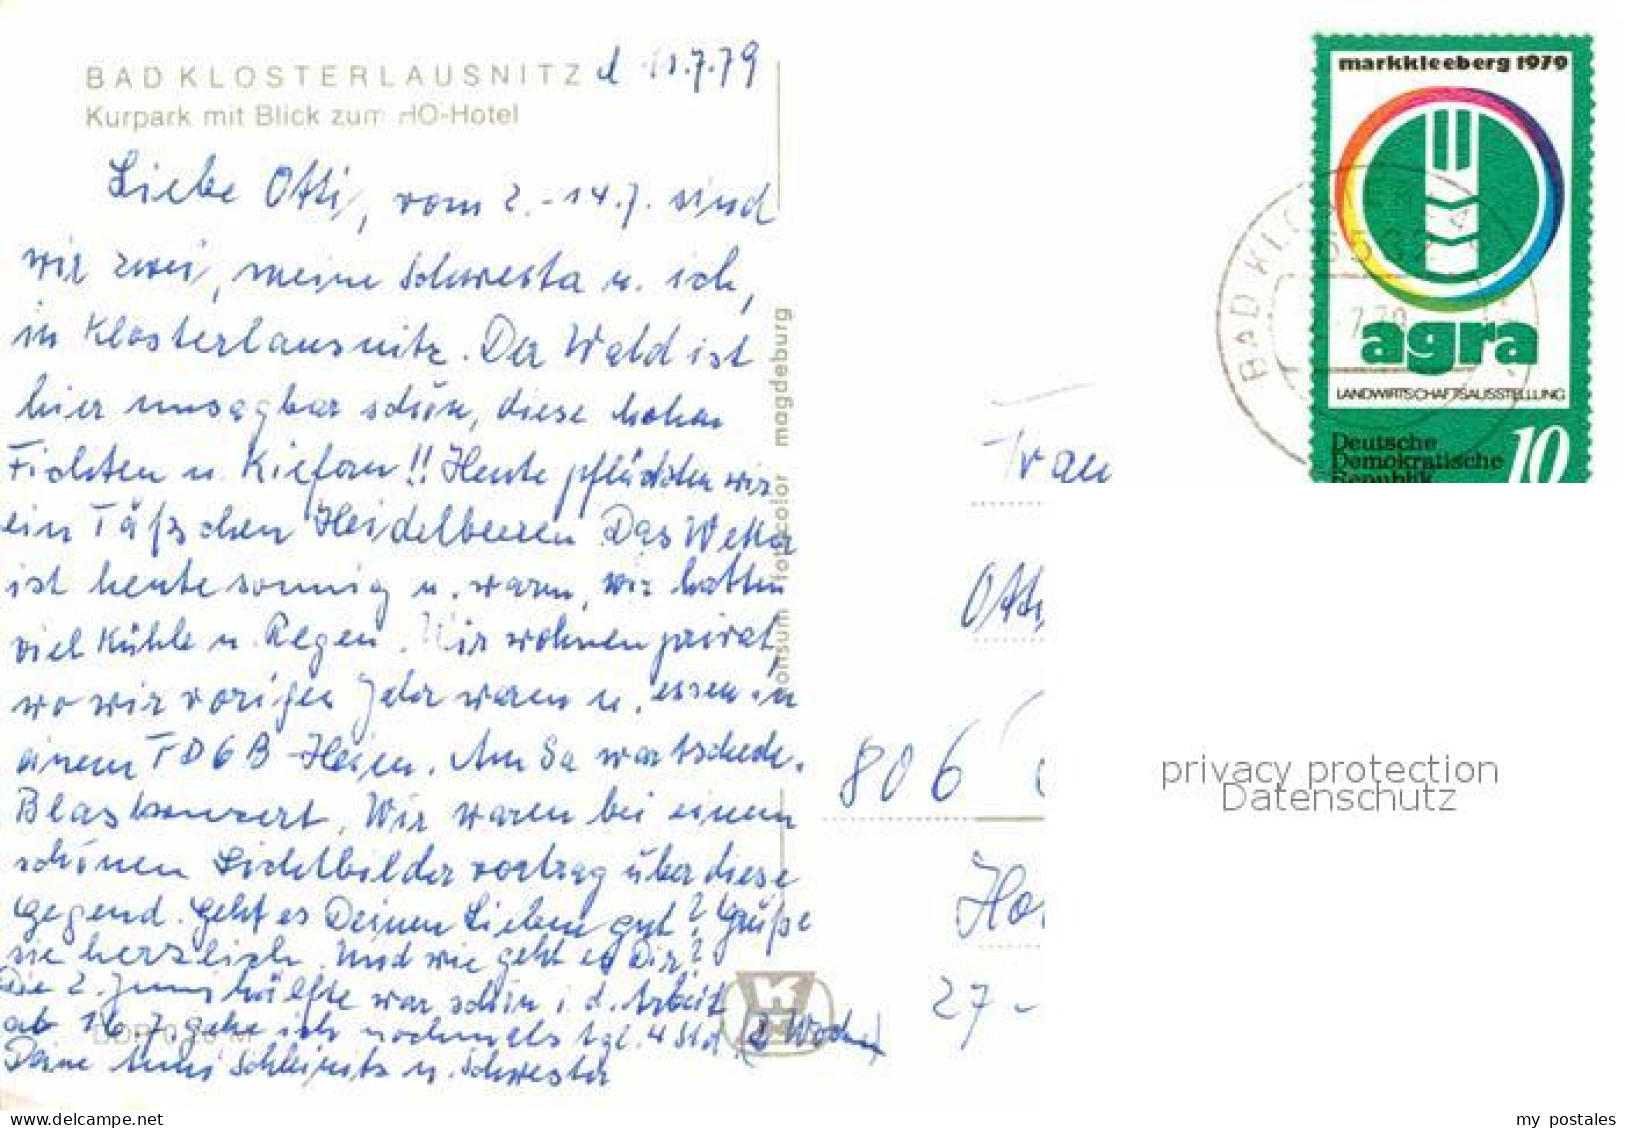 BAD KLOSTERLAUSNITZ d 11.7.79
Kurpark mit Blick zum HO-Hotel
Liebe Otti, vom 2.-14.7. sind
wir zwei, meine Schwester u. ich,
in Klosterlausnitz. Der Wald ist
hier unsagbar schön, diese hohen
Fichten u. Kiefern!! Heute pflückten wir
ein Täßchen Heidelbeeren Das Wetter
ist heute sonnig u. warm, wir hatten
viel Kühle u. Regen. Wir wohnen privat,
wo wir voriges Jahr waren u. essen in
einem FDGB-Heim. Am Sa war
Blaskonzert. Wir waren bei einem
schönen Lichtbildervortrag über diese
Gegend. Geht es Deinen Lieben gut? Grüße
sie herzlich. Und wie geht es Dir?
Die 2. Junihälfte war schön i. d. Arbeit
ab 16.7. gehe ich nochmals tgl. 4 Std (2 Wochen)
Deine u. Schwester
konsum fotocolor magdeburg
markkleeberg 1979
agra
LANDWIRTSCHAFTSAUSSTELLUNG
Deutsche
Demokratische
Republik
10
BAD KLOSTE
Frau
Otti
806
Ho
27 -
privacy protection
Datenschutz
www.delcampe.net
my_postales